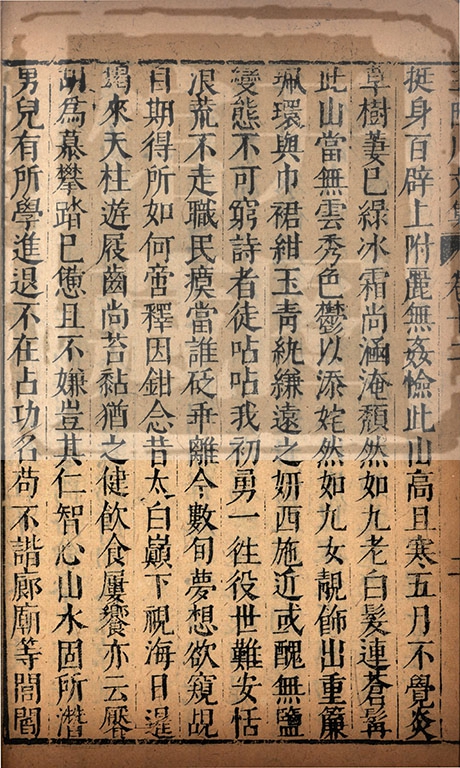 挺身百辟上附麗無姦憸此山高且寒五月不覺炎
草樹萋已綠冰霜尚涵淹頹然如九老白髮連蒼髯
此山當無雲秀色鬱以添姹然如九女靚飾出重簾
珮環與巾裙紺玉青紈縑遠之妍西施近或醜無鹽
變態不可窮詩者徒呫呫我初勇一徃役世難安恬
浪荒不走職民瘼當誰砭乖離今數旬夢想欲窺覘
自期得所如何啻釋囚鉗念昔太白巔下視海日暹
朅來天柱遊屐齒尚苔黏猶之健飲食屢饗亦云饜
胡為慕攀踏已憊且不嫌豈其仁智心山水固所潛
男兒有所學進退不在占功名苟不諧廊廟等閭閻